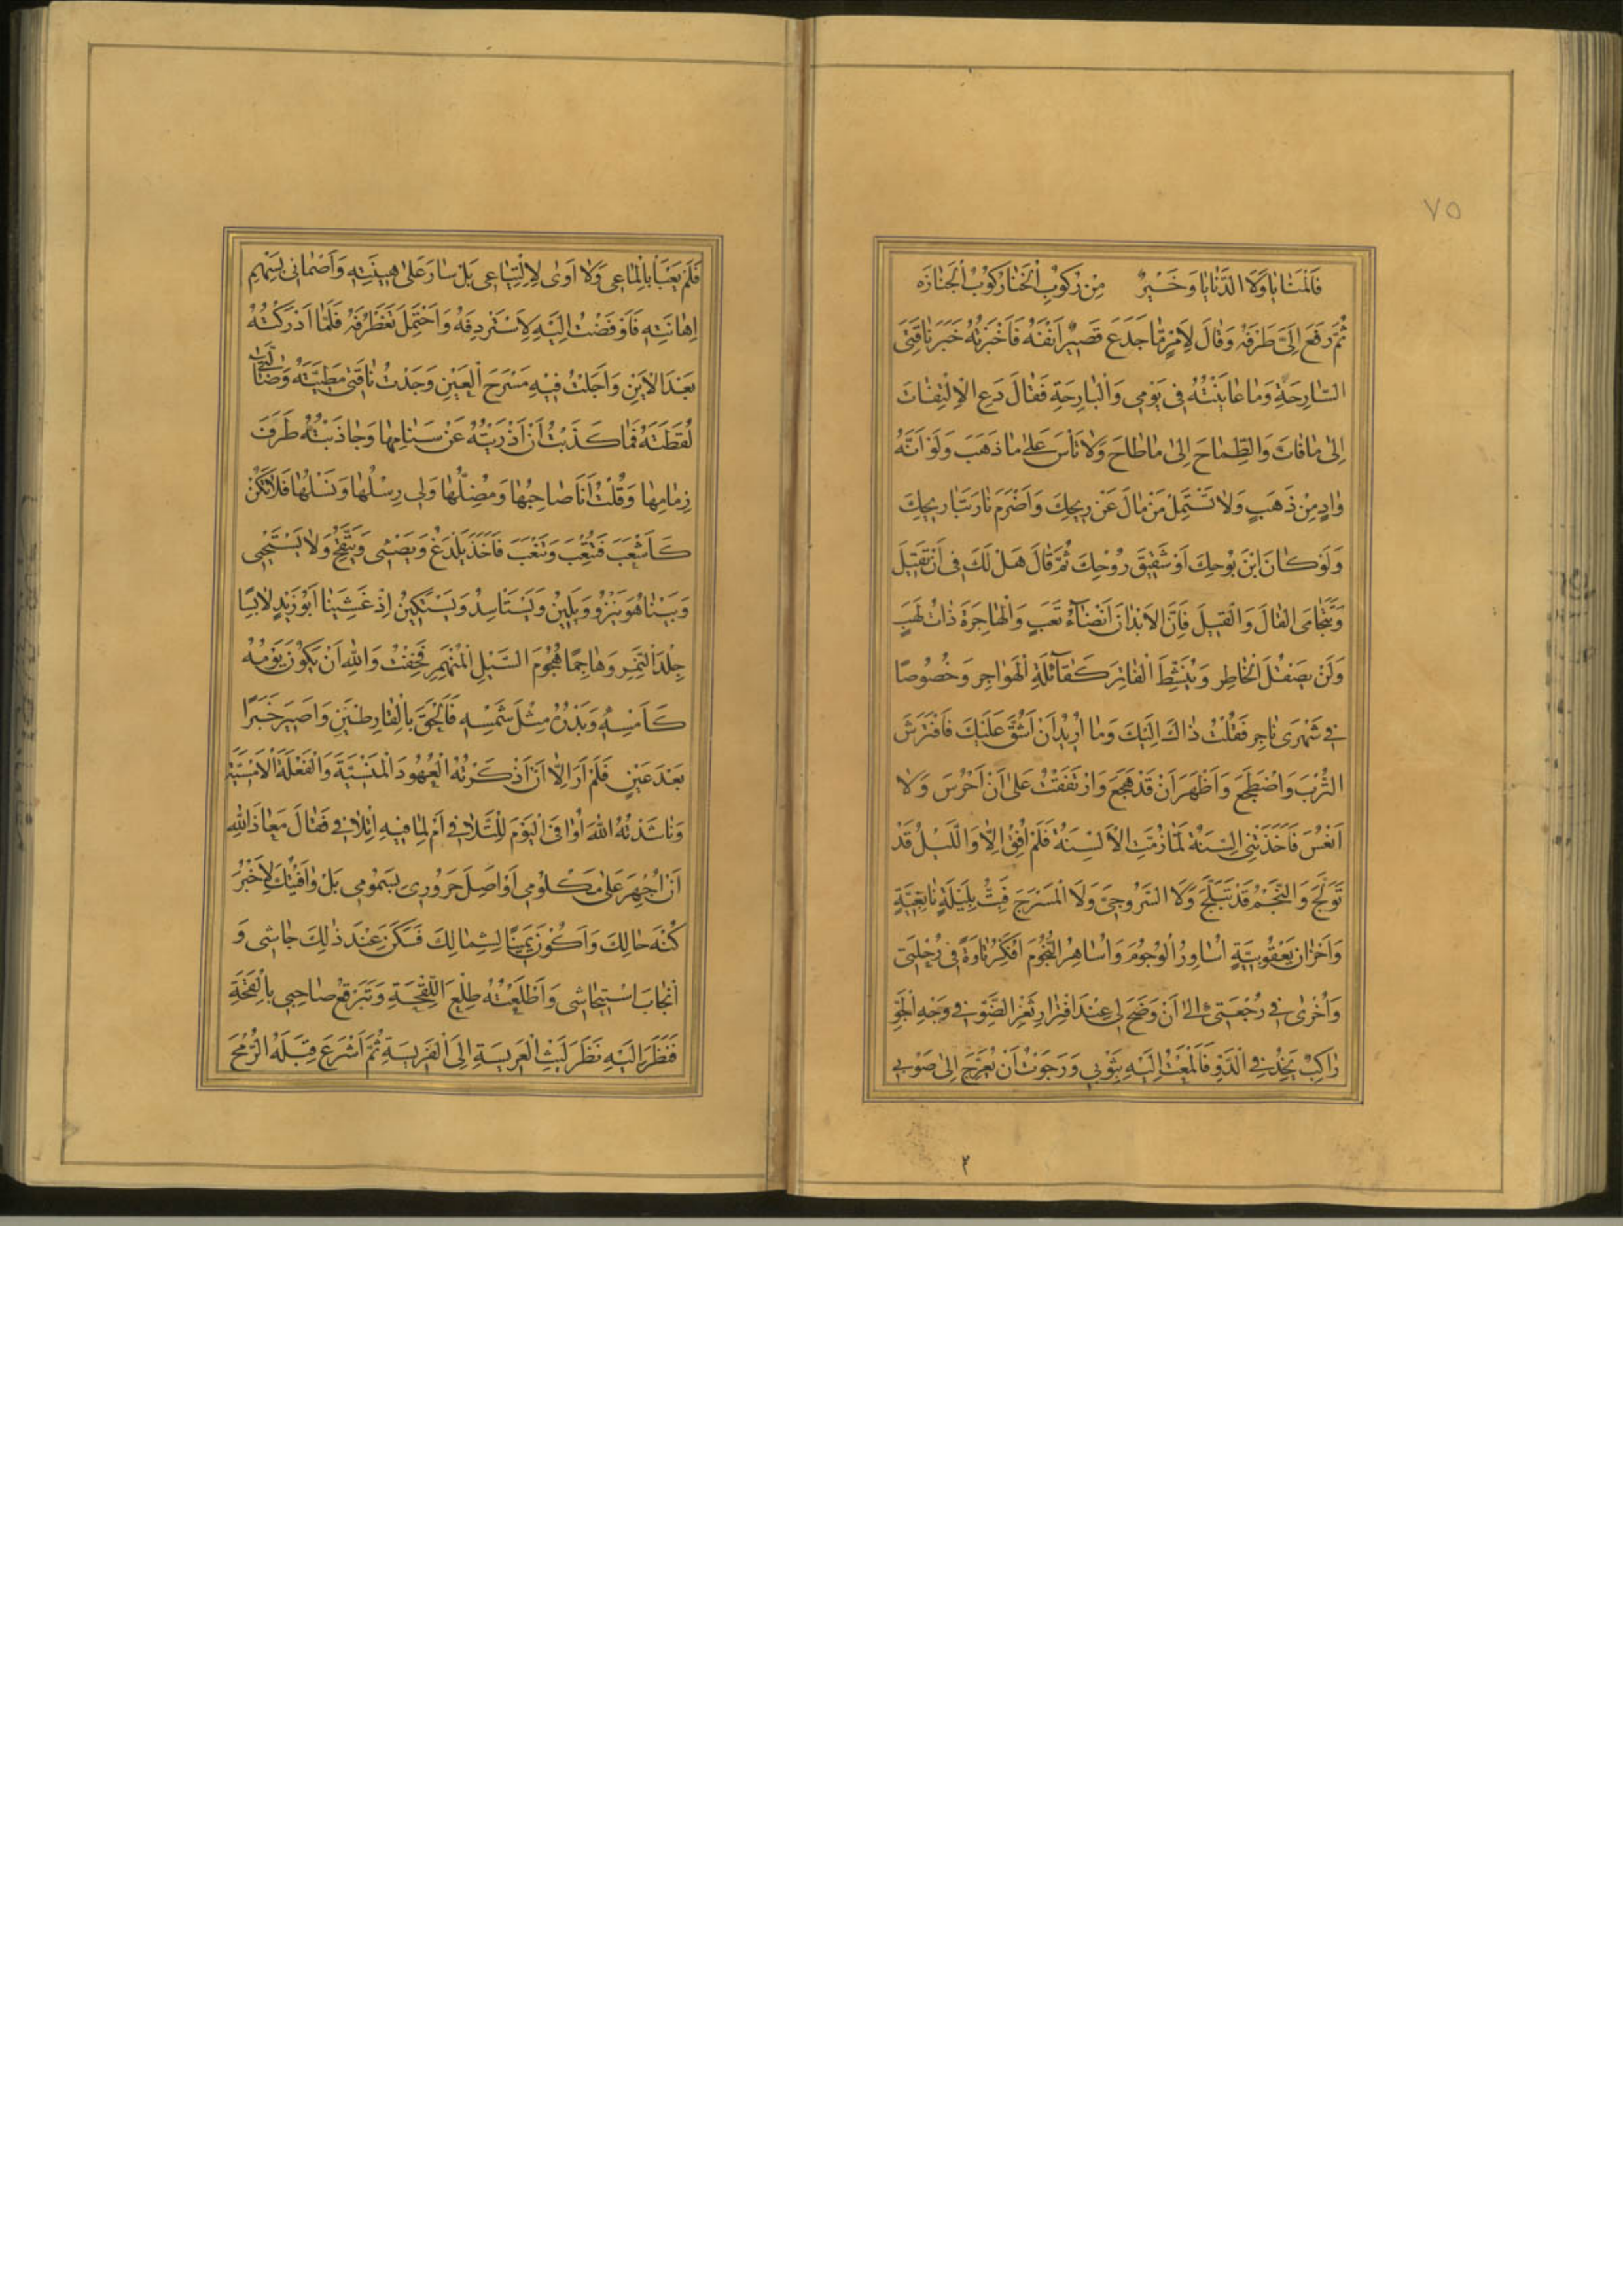 ٧٥
فَالْمَنَايَا وَلَا الدَّنَايَا وَخَيْرٌ مِنْ رُكُوبِ الْخَنَا رُكُوبُ الْجَنَازَه
ثُمَّ رَفَعَ اِلَيَّ طَرْفَهُ وَقَالَ لِاَمْرٍ مَا جَدَعَ قَصِيرٌ اَنْفَهُ فَاَخْبَرْتُهُ خَبَرَ نَاقَتِيَ
السَّارِحَةِ وَمَا عَايَنْتُهُ فِي يَوْمِي وَالْبَارِحَةِ فَقَالَ دَعِ الْاِلْتِفَاتَ
اِلَى مَا فَاتَ وَالطِّمَاحَ اِلَى مَا طَاحَ وَلَا تَاْسَ عَلَى مَا ذَهَبَ وَلَوْ اَنَّهُ
وَادٍ مِنْ ذَهَبٍ وَلَا تَسْتَمِلْ مَنْ مَالَ عَنْ رِيحِكَ وَاَضْرَمَ نَارَ تَبَارِيحِكَ
وَلَوْ كَانَ ابْنَ بُوحِكَ اَوْ شَقِيقَ رُوحِكَ ثُمَّ قَالَ هَلْ لَكَ فِي اَنْ تَقِيلَ
وَتَتَحَامَى الْقَالَ وَالْقِيلَ فَاِنَّ الْاَبْدَانَ اَنْضَاءُ تَعَبٍ وَالْهَاجِرَةَ ذَاتُ لَهَبٍ
وَلَنْ يَصْقُلَ الْخَاطِرَ وَيُنَشِّطَ الْفَاتِرَ كَقَائِلَةِ الْهَوَاجِرِ وَخُصُوصًا
فِي شَهْرَيْ نَاجِرٍ فَقُلْتُ ذَاكَ اِلَيْكَ وَمَا اُرِيدُ اَنْ اَشُقَّ عَلَيْكَ فَافْتَرَشَ
التُّرْبَ وَاضْطَجَعَ وَاَظْهَرَ اَنْ قَدْ هَجَعَ وَارْتَفَقْتُ عَلَى اَنْ اَحْرُسَ وَلَا
اَنْعُسَ فَاَخَذَتْنِي السِّنَةُ لَمَّا زُمَّتِ الْاَلْسِنَةُ فَلَمْ اُفِقْ اِلَّا وَاللَّيْلُ قَدْ
تَوَلَّجَ وَالنَّجْمُ قَدْ تَبَلَّجَ وَلَا السَّرُوجِيَّ وَلَا الْمُسْرَجَ فَبِتُّ بِلَيْلَةٍ نَابِغِيَّةٍ
وَاَحْزَانٍ يَعْقُوبِيَّةٍ اُسَاوِرُ الْوُجُومَ وَاُسَاهِرُ النُّجُومَ اُفَكِّرُ تَارَةً فِي رُجْلَتِي
وَاُخْرَى فِي رُجْعَتِي اِلَى اَنْ وَضَحَ لِي عِنْدَ افْتِرَارِ ثَغْرِ الضَّوْءِ فِي وَجْهِ الْجَوِّ
رَاكِبٌ يَخِدُ فِي الدَّوِّ فَاَلْمَعْتُ اِلَيْهِ بِثَوْبِي وَرَجَوْتُ اَنْ يُعَرِّجَ اِلَى صَوْبِي
فَلَمْ يَعْبَأْ بِاِلْمَاعِي وَلَا اَوَى لِالْتِيَاعِي بَلْ سَارَ عَلَى هِينَتِهِ وَاَصْمَانِي بِسَهْمِ
اِهَانَتِهِ فَاَوْفَضْتُ اِلَيْهِ لِاَسْتَرْدِفَهُ وَاَحْتَمِلَ تَغَطْرُفَهُ فَلَمَّا اَدْرَكْتُهُ
بَعْدَ الْاَيْنِ وَاَجَلْتُ فِيهِ مَسْرَحَ الْعَيْنِ وَجَدْتُ نَاقَتِي مَطِيَّتَهُ وَضَالَّتِي
لُقَطَتَهُ فَمَا كَذَّبْتُ اَنْ اَذْرَيْتُهُ عَنْ سَنَامِهَا وَجَاذَبْتُهُ طَرَفَ
زِمَامِهَا وَقُلْتُ اَنَا صَاحِبُهَا وَمُضِلُّهَا وَلِي رِسْلُهَا وَنَسْلُهَا فَلَا تَكُنْ
كَاَشْعَبَ فَتُتْعِبَ وَتَتْعَبَ فَاَخَذَ يَلْدَغُ وَيَصْئِي وَيَتَّقِحُ وَلَا يَسْتَحْيِي
وَبَيْنَا هُوَ يَنْزُو وَيَلِينُ وَيَسْتَاْسِدُ وَيَسْتَكِينُ اِذْ غَشِيَنَا اَبُو زَيْدٍ لَابِسًا
جِلْدَ النَّمِرِ وَهَاجِمًا هُجُومَ السَّيْلِ الْمُنْهَمِرِ فَخِفْتُ وَاللهِ اَنْ يَكُونَ يَوْمُهُ
كَاَمْسِهِ وَبَدْرُهُ مِثْلَ شَمْسِهِ فَاَلْحَقَ بِالْقَارِظَيْنِ وَاَصِيرَ خَبَرًا
بَعْدَ عَيْنٍ فَلَمْ اَرَ اِلَّا اَنْ اَذْكَرْتُهُ الْعُهُودَ الْمَنْسِيَّةَ وَالْفَعْلَةَ الْاَمْسِيَّةَ
وَنَاشَدْتُهُ اللهَ اَوَافَى الْيَوْمَ لِلتَّلَافِي اَمْ لِمَا فِيهِ اِتْلَافِي فَقَالَ مَعَاذَ اللهِ
اَنْ اُجْهِزَ عَلَى مَكْلُومِي اَوْ اَصِلَ حَرُورِي بِسَمُومِي بَلْ وَافَيْتُكَ لِاَخْبُرَ
كُنْهَ حَالِكَ وَاَكُونَ يَمِينًا لِشِمَالِكَ فَسَكَنَ عِنْدَ ذَلِكَ جَاشِي وَ
انْجَابَ اسْتِيحَاشِي وَاَطْلَعْتُهُ طِلْعَ اللِّقْحَةِ وَتَبَرْقُعَ صَاحِبِي بِالْقِحَةِ
فَنَظَرَ اِلَيْهِ نَظَرَ لَيْثِ الْعِرِّيسَةِ اِلَى الْفَرِيسَةِ ثُمَّ اَشْرَعَ قِبَلَهُ الرُّمْحَ